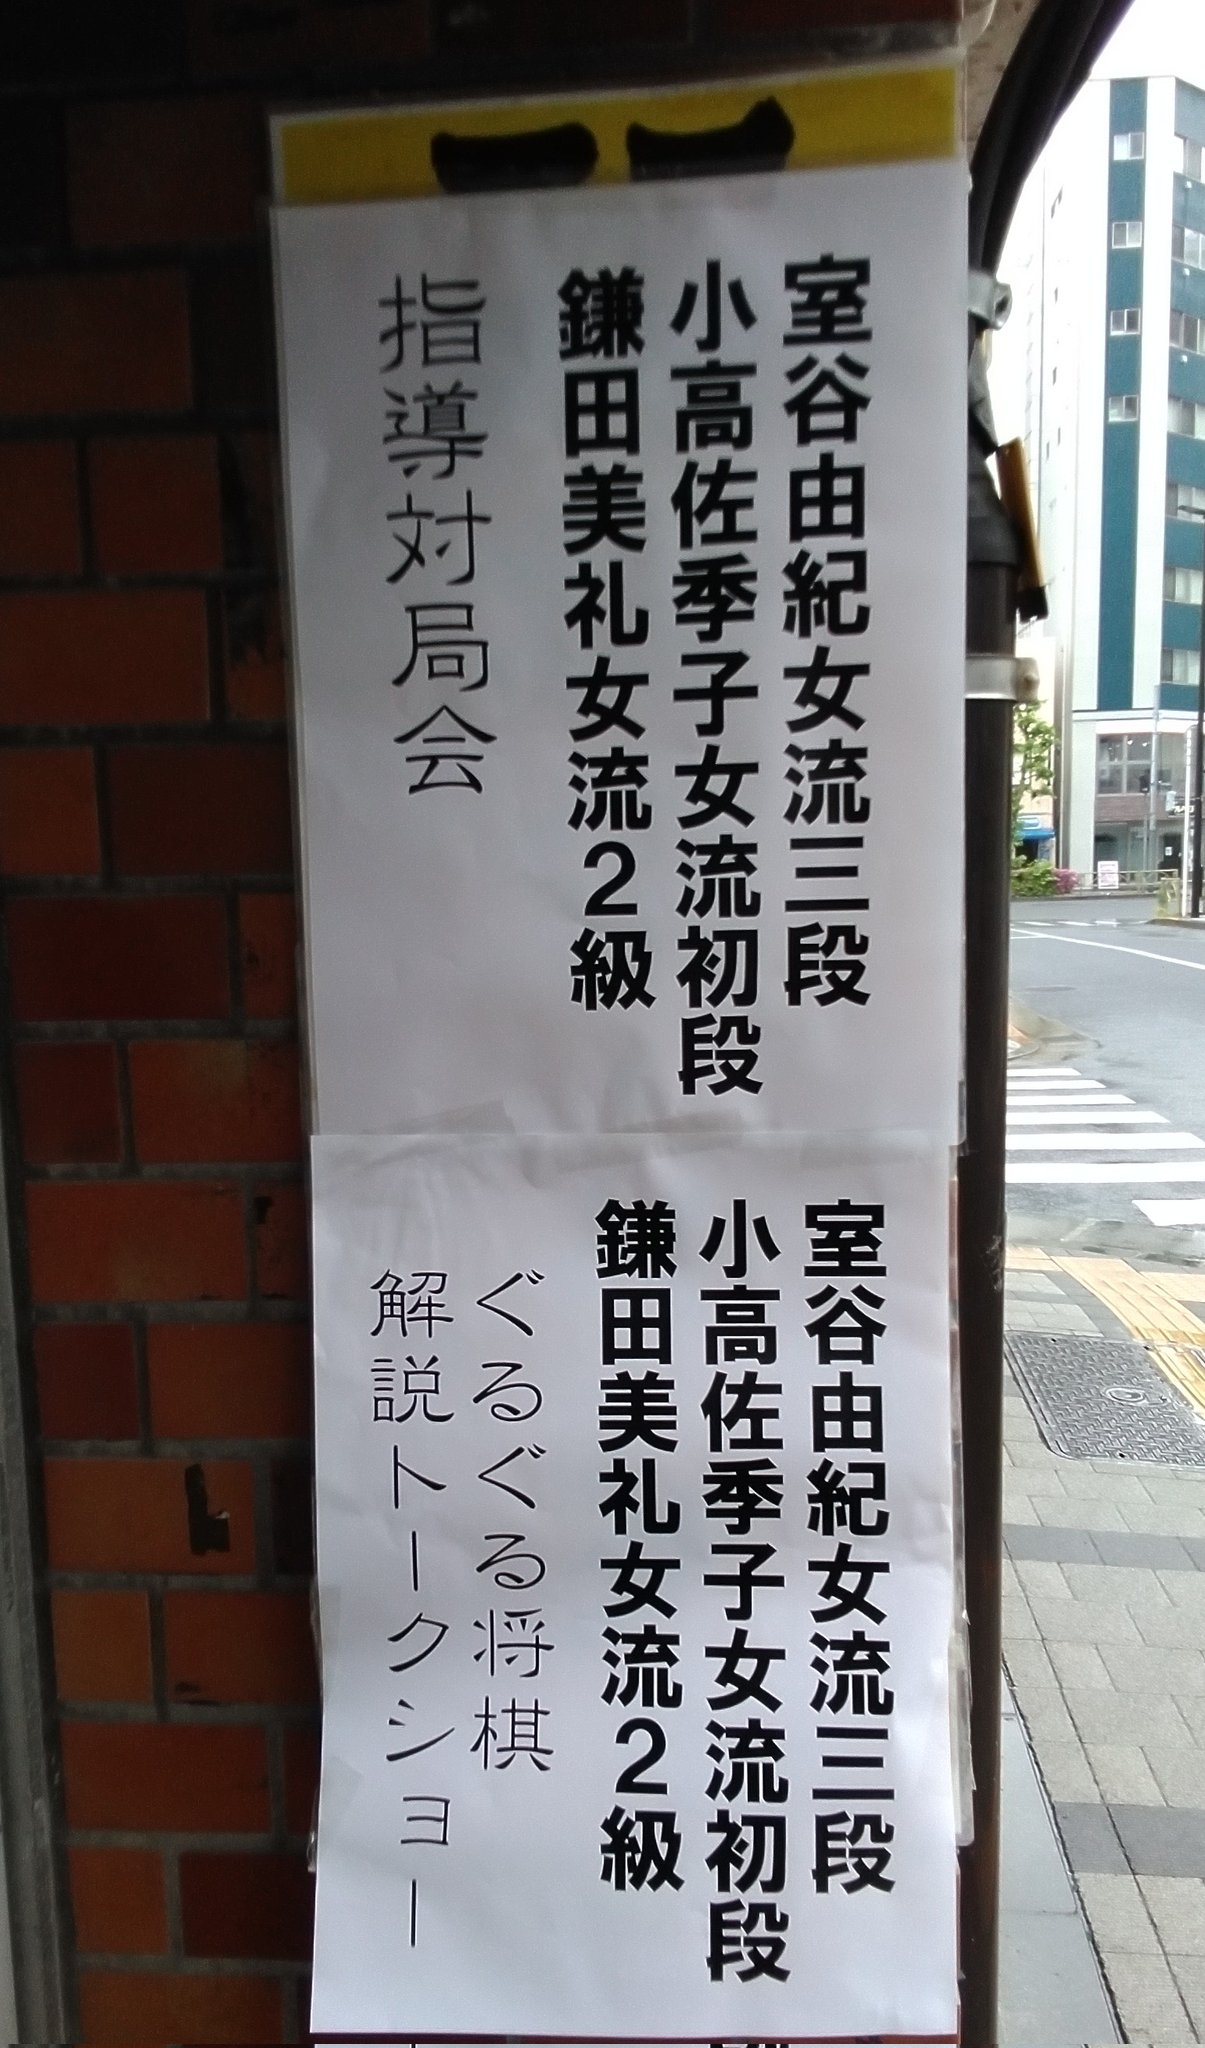 室谷由紀女流三段
小高佐季子女流初段
鎌田美礼女流2級
指導対局会
室谷由紀女流三段
小高佐季子女流初段
鎌田美礼女流2級
ぐるぐる将棋
解説トークショー